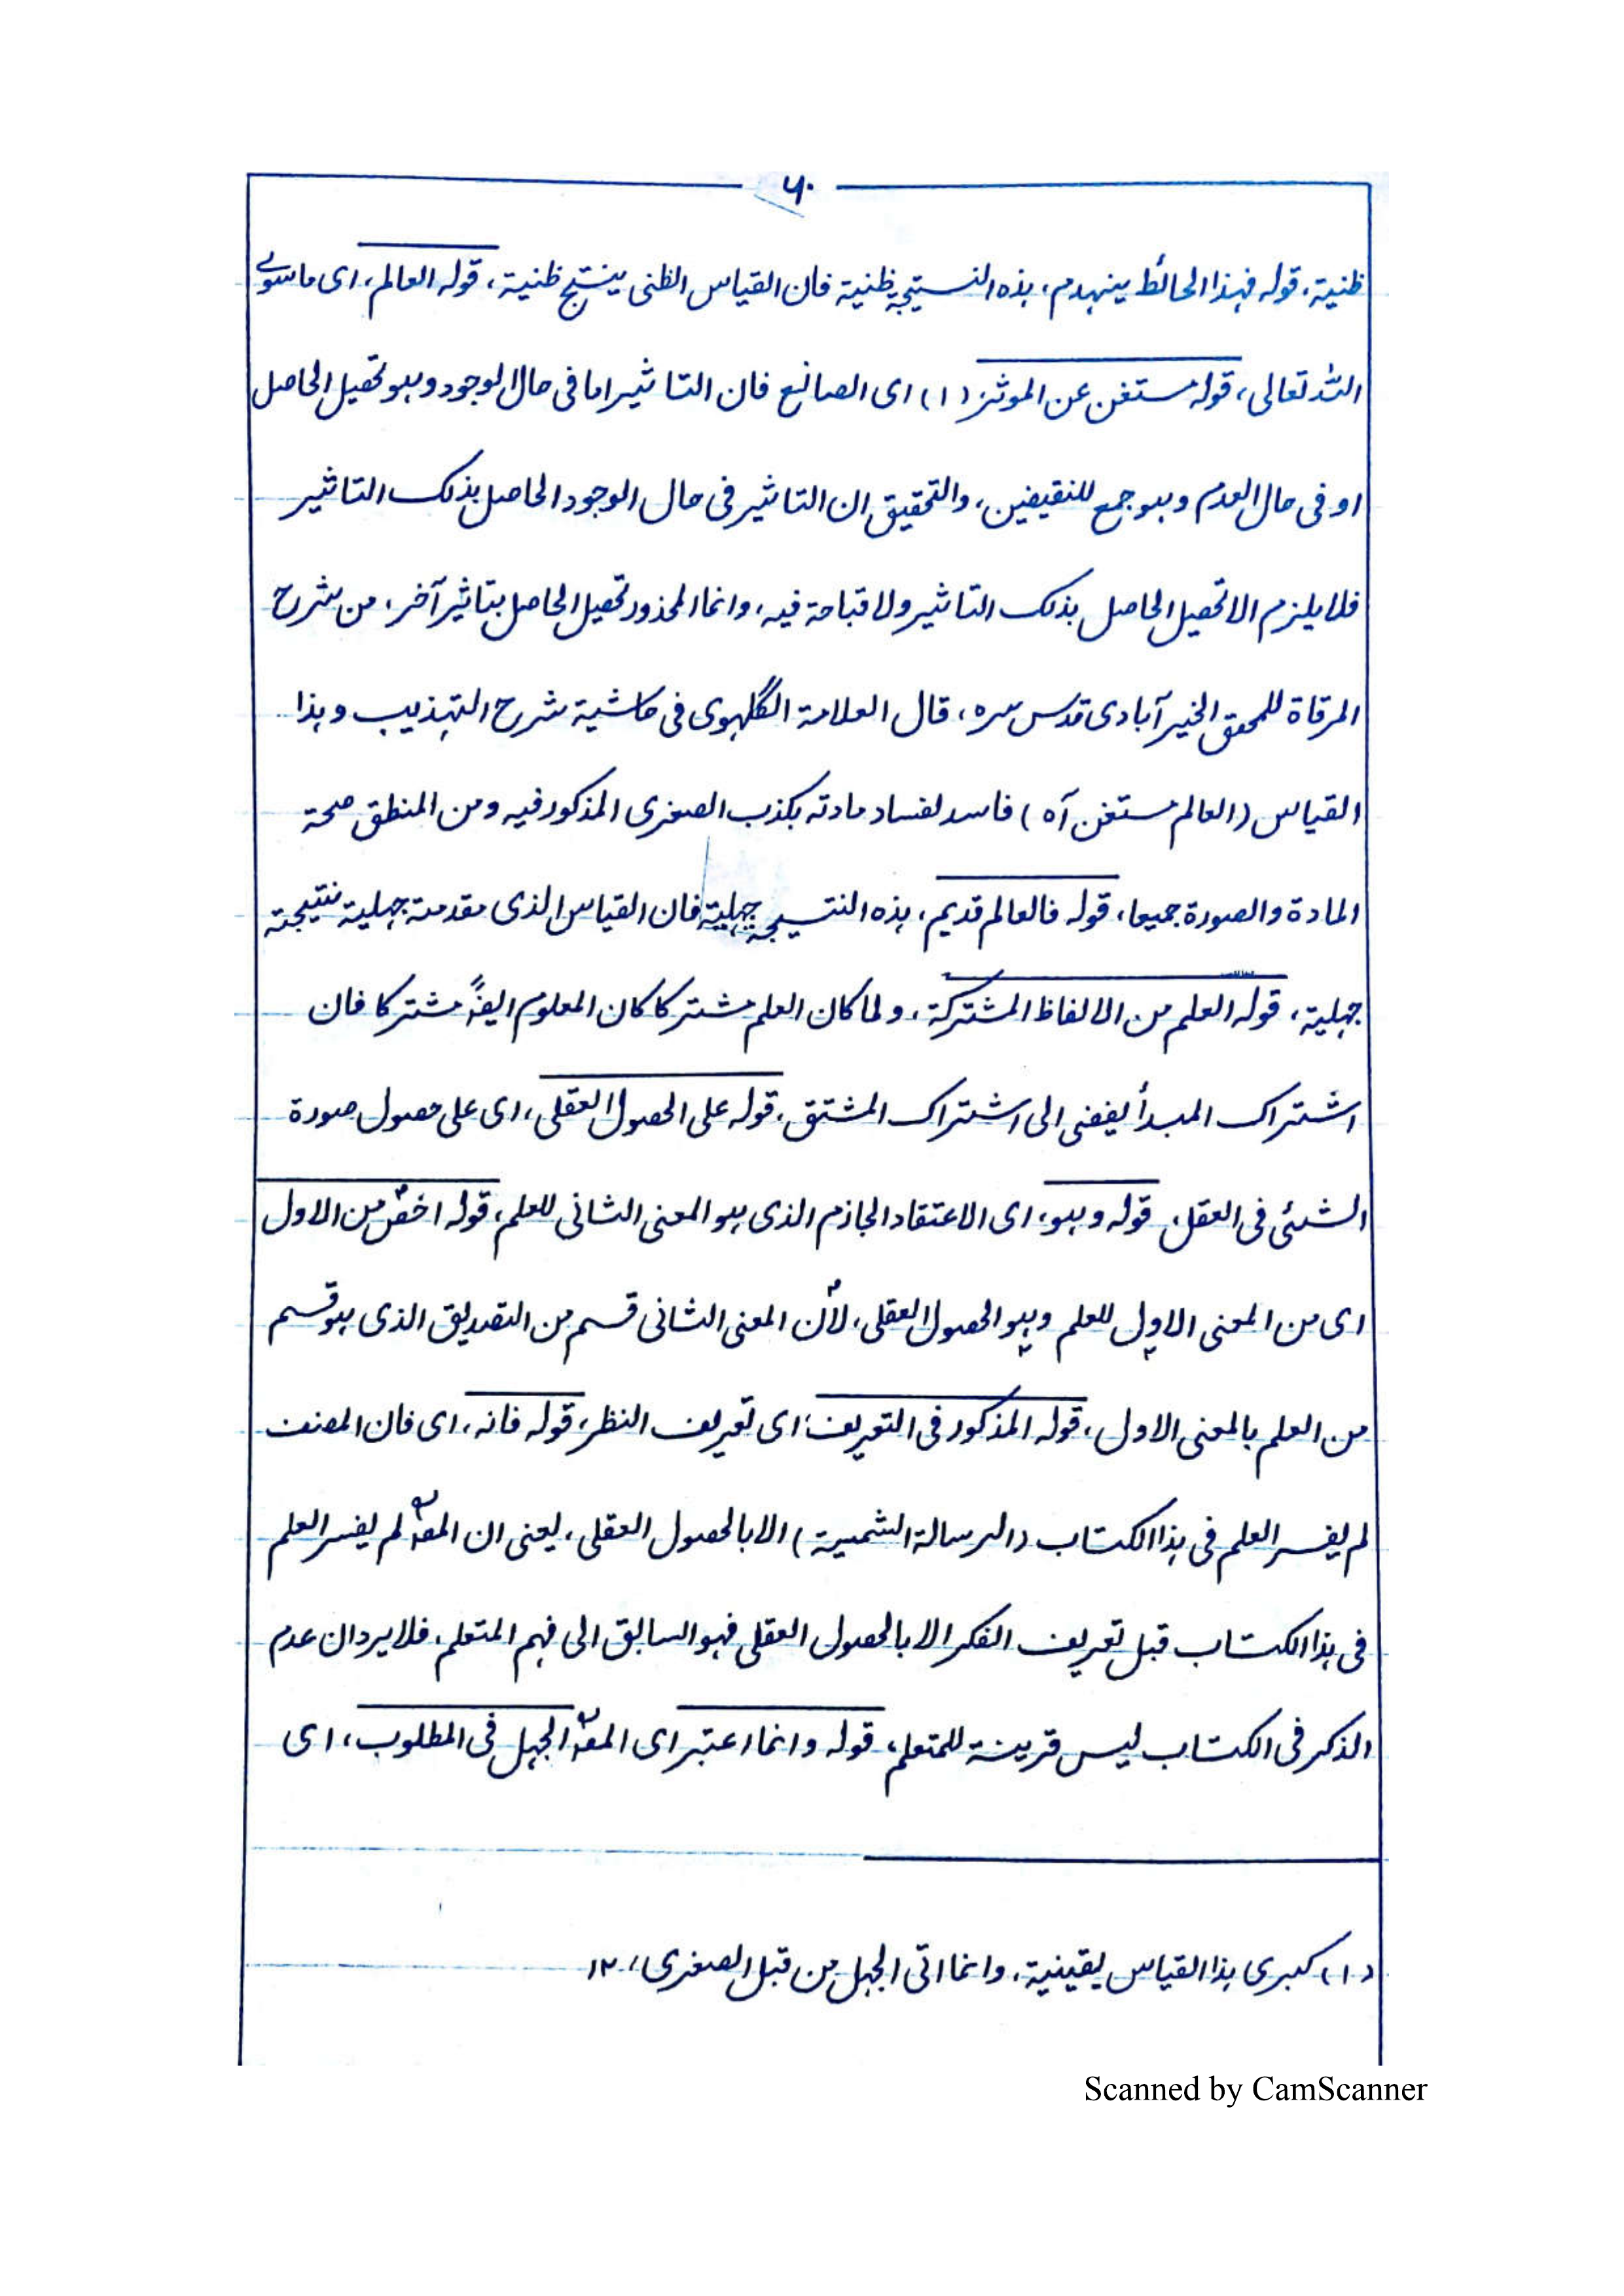 ۶۰
ظنیة، قوله فهذا الحائط ینهدم، هذه النتیجة ظنیة فان القیاس الظنی ینتج ظنیة، قوله العالم، ای ما سوی
اللہ تعالی، قوله مستغن عن الموثر (۱) ای الصانع فان التاثیر اما فی حال الوجود وهو تحصیل الحاصل
او فی حال العدم وهو جمع للنقیضین، والتحقیق ان التاثیر فی حال الوجود الحاصل بذلک التاثیر
فلا یلزم الا تحصیل الحاصل بذلک التاثیر ولا قباحة فیه، وانما المحذور تحصیل الحاصل بتاثیر آخر، من شرح
المرقاة للمحقق الخیرآبادی قدس سره، قال العلامة الگلهوی فی حاشیة شرح التهذیب وهذا
القیاس (العالم مستغن آه) فاسد لفساد مادته بکذب الصغری المذکور فیه ومن المنطق صحة
المادة والصورة جمیعا، قوله فالعالم قدیم، هذه النتیجة جهلیة فان القیاس الذی مقدمته جهلیة نتیجته
جهلیة، قوله العلم من الالفاظ المشترکة، ولما کان العلم مشترکا کان المعلوم ایضًا مشترکا فان
اشتراک المبدأ یفضی الی اشتراک المشتق، قوله علی الحصول العقلی، ای علی حصول صورة
الشئی فی العقل، قوله وهو، ای الاعتقاد الجازم الذی هو المعنی الثانی للعلم، قوله اخصّ من الاول
ای من المعنی الاول للعلم وهو الحصول العقلی، لأن المعنی الثانی قسم من التصدیق الذی هو قسم
من العلم بالمعنی الاول، قوله المذکور فی التعریف، ای تعریف النظر، قوله فانه، ای فان المصنف
لم یفسر العلم فی هذا الکتاب (الرسالة الشمسیة) الا بالحصول العقلی، یعنی ان المصؒ لم یفسر العلم
فی هذا الکتاب قبل تعریف الفکر الا بالحصول العقلی فهو السابق الی فهم المتعلم، فلا یرد ان عدم
الذکر فی الکتاب لیس قرینة للمتعلم، قوله وانما اعتبر ای المصؒ الجهل فی المطلوب، ای
(۱) کبری هذا القیاس یقینیة، وانما اتی الجهل من قبل الصغری، ۱۲
Scanned by CamScanner